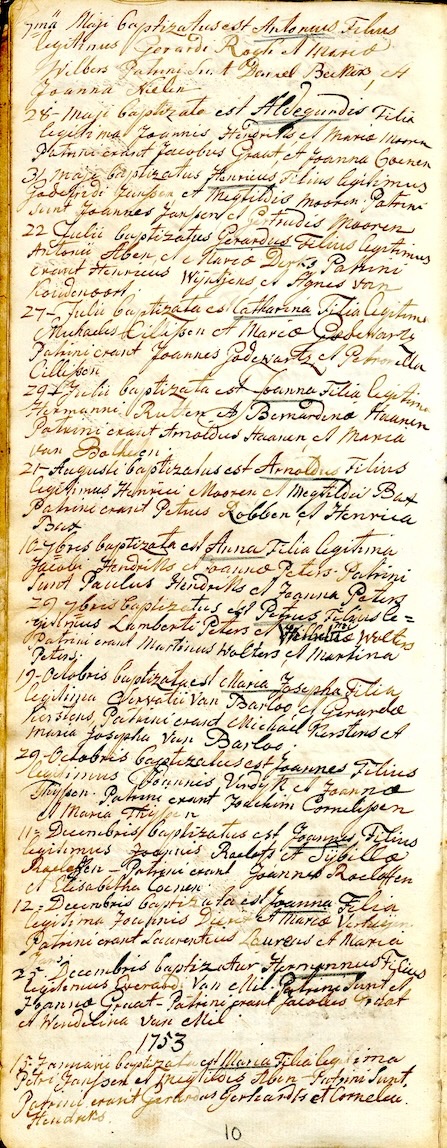 7mâ Maji baptizatus est Antonius Filius
legitimus Gerardi Rogh et Mariæ
Hilbers Patrini sunt Daniel Becker, et
Joanna Nielen
28- Maji baptizata est Aldegundis Filia
legitima Joannis Hendriks et Mariæ
Patrini erant Jacobus Graat et Joanna Coenen
31 Maji baptizatus Henricus Filius legitimus
Godefridi Janssen et Megtildis Mooren Patrini
sunt Joannes Janssen et Gertrudis Mooren
22 Julii baptizatus Gerardus Filius legitimus
Antonii Aben et Mariæ Derks Patrini
erant Henricus Wijntjens et Agnes van
Koudenoort
27- Julii baptizata est Catharina Filia legitima
Michaelis Cilissen et Mariæ Godewartz
Patrini erant Joannes Godewartz et Petronilla
Cillessen
29- Julii baptizata est Joanna Filia legitima
Hermanni Rutten et Bernardinæ Haanen
Patrini erant Arnoldus Haanen et Maria
van
21- Augusti baptizatus est Arnoldus Filius
legitimus Henrici Mooren et Megtildis Bax
Patrini erant Petrus Robben et Henrica
Bax
10- 7bris baptizata est Anna Filia legitima
Jacobi Hendriks et Joannæ Peters- Patrini
sunt Paulus Hendriks et Joanna Peters
29 7bris baptizatus est Petrus Filius le=
gitimus Lamberti Peters et Wolters
Patrini erant Martinus Wolters et Martina
Peters.
19- Octobris baptizata est Maria Josepha Filia
legitima Servatii Van Barloo et Gerardæ
Kerstens, Patrini erant Michael Kerstens et
Maria Josepha Van Barloo.
29- Octobris baptizatus est Joannes Filius
legitimus Joannis Verdijk et Joannæ
Thijssen. Patrini erant Joachim Cornelissen
et Maria Thijssen
11= Decembris baptizatus est Joannes Filius
legitimus Joannis Roelofs et Sybillæ
Patrini erant Joannes Roelofsen
et Elisabetha Coenen.
12= Decembris baptizata est Joanna Filia
legitima Joannis et Mariæ
Patrini erant Laurentius Laurens et Maria
25- Decembris baptizatur Hermannus Filius
legitimus Everardi Van Mil. Patrini sunt et
Joannæ Graat- Patrini erant Jacobus Graat
et Wendelina Van Mil
1753
15- Januarii baptizata est Maria Filia legitima
Petri Janssen et Megtildis Aben- Patrini sunt,
Patrini erant Gerardus Gerhardts et Cornelia
Hendriks.
10